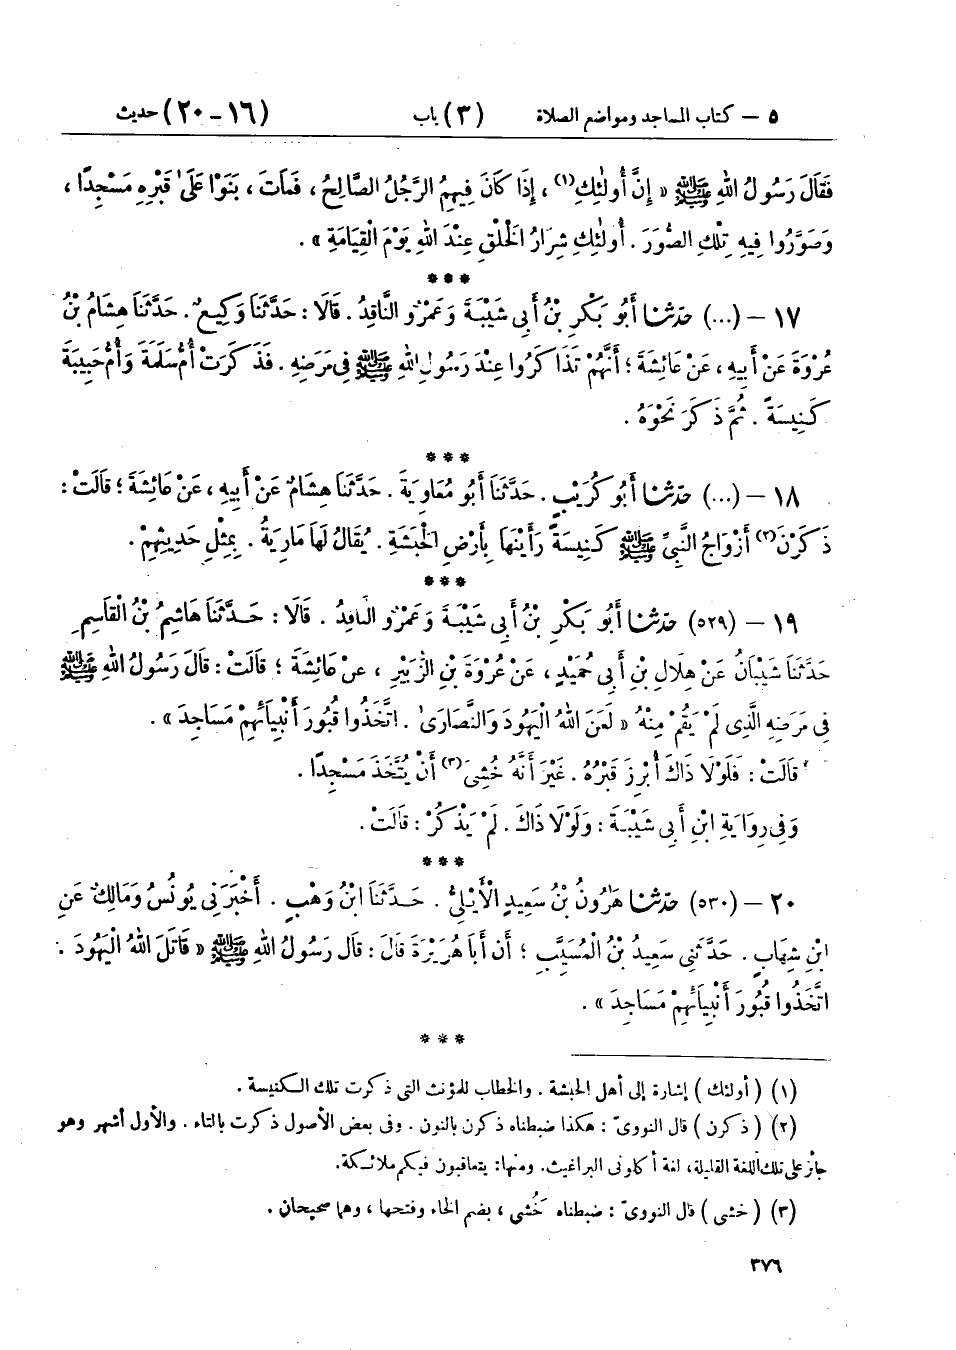 ٥ – كتاب المساجد ومواضع الصلاة (٣) باب (١٦ – ٢٠) حديث
فَقَالَ رَسُولُ اللهِ ﷺ « إِنَّ أُولٰئِكِ(١) ، إِذَا كَانَ فِيهِمُ الرَّجُلُ الصَّالِحُ ، فَمَاتَ ، بَنَوْا عَلَىٰ قَبْرِهِ مَسْجِدًا ،
وَصَوَّرُوا فِيهِ تِلْكِ الصُّوَرَ . أُولٰئِكِ شِرَارُ الْخَلْقِ عِنْدَ اللهِ يَوْمَ الْقِيَامَةِ » .
***
١٧ – (...) حَدَّثَنَا أَبُو بَكْرِ بْنُ أَبِي شَيْبَةَ وَعَمْرٌو النَّاقِدُ . قَالَا : حَدَّثَنَا وَكِيعٌ . حَدَّثَنَا هِشَامُ بْنُ
عُرْوَةَ عَنْ أَبِيهِ ، عَنْ عَائِشَةَ ؛ أَنَّهُمْ تَذَاكَرُوا عِنْدَ رَسُولِ اللهِ ﷺ فِي مَرَضِهِ . فَذَكَرَتْ أُمُّ سَلَمَةَ وَأُمُّ حَبِيبَةَ
كَنِيسَةً . ثُمَّ ذَكَرَ نَحْوَهُ .
***
١٨ – (...) حَدَّثَنَا أَبُو كُرَيْبٍ . حَدَّثَنَا أَبُو مُعَاوِيَةَ . حَدَّثَنَا هِشَامٌ عَنْ أَبِيهِ ، عَنْ عَائِشَةَ ؛ قَالَتْ :
ذَكَرْنَ(٢) أَزْوَاجُ النَّبِيِّ ﷺ كَنِيسَةً رَأَيْنَهَا بِأَرْضِ الْحَبَشَةِ . يُقَالُ لَهَا مَارِيَةُ . بِمِثْلِ حَدِيثِهِمْ .
***
١٩ – (٥٢٩) حَدَّثَنَا أَبُو بَكْرِ بْنُ أَبِي شَيْبَةَ وَعَمْرٌو النَّاقِدُ . قَالَا : حَدَّثَنَا هَاشِمُ بْنُ الْقَاسِمِ .
حَدَّثَنَا شَيْبَانُ عَنْ هِلَالِ بْنِ أَبِي حُمَيْدٍ ، عَنْ عُرْوَةَ بْنِ الزُّبَيْرِ ، عَنْ عَائِشَةَ ؛ قَالَتْ : قَالَ رَسُولُ اللهِ ﷺ
فِي مَرَضِهِ الَّذِي لَمْ يَقُمْ مِنْهُ « لَعَنَ اللهُ الْيَهُودَ وَالنَّصَارَىٰ . اتَّخَذُوا قُبُورَ أَنْبِيَائِهِمْ مَسَاجِدَ » .
قَالَتْ : فَلَوْلَا ذَاكَ أُبْرِزَ قَبْرُهُ . غَيْرَ أَنَّهُ خُشِيَ(٣) أَنْ يُتَّخَذَ مَسْجِدًا .
وَفِي رِوَايَةِ ابْنِ أَبِي شَيْبَةَ : وَلَوْلَا ذَاكَ . لَمْ يَذْكُرْ : قَالَتْ .
***
٢٠ – (٥٣٠) حَدَّثَنَا هَارُونُ بْنُ سَعِيدٍ الْأَيْلِيُّ . حَدَّثَنَا ابْنُ وَهْبٍ . أَخْبَرَنِي يُونُسُ وَمَالِكٌ عَنِ
ابْنِ شِهَابٍ . حَدَّثَنِي سَعِيدُ بْنُ الْمُسَيَّبِ ؛ أَن أَبَا هُرَيْرَةَ قَالَ : قَالَ رَسُولُ اللهِ ﷺ « قَاتَلَ اللهُ الْيَهُودَ .
اتَّخَذُوا قُبُورَ أَنْبِيَائِهِمْ مَسَاجِدَ » .
***
(١) ( أولئك ) إشارة إلى أهل الحبشة . والخطاب للمؤنث التى ذكرت تلك الكنيسة .
(٢) ( ذكرن ) قال النووىّ : هكذا ضبطناه ذكرن بالنون . وفى بعض الأصول ذكرت بالتاء . والأول أشهر وهو
جائز على تلك اللغة القليلة ، لغة أكلونى البراغيث . ومنها : يتعاقبون فيكم ملائكة .
(٣) ( خشى ) قال النووىّ : ضبطناه خُشى ، بضم الخاء وفتحها ، وهما صحيحان .
٣٧٦